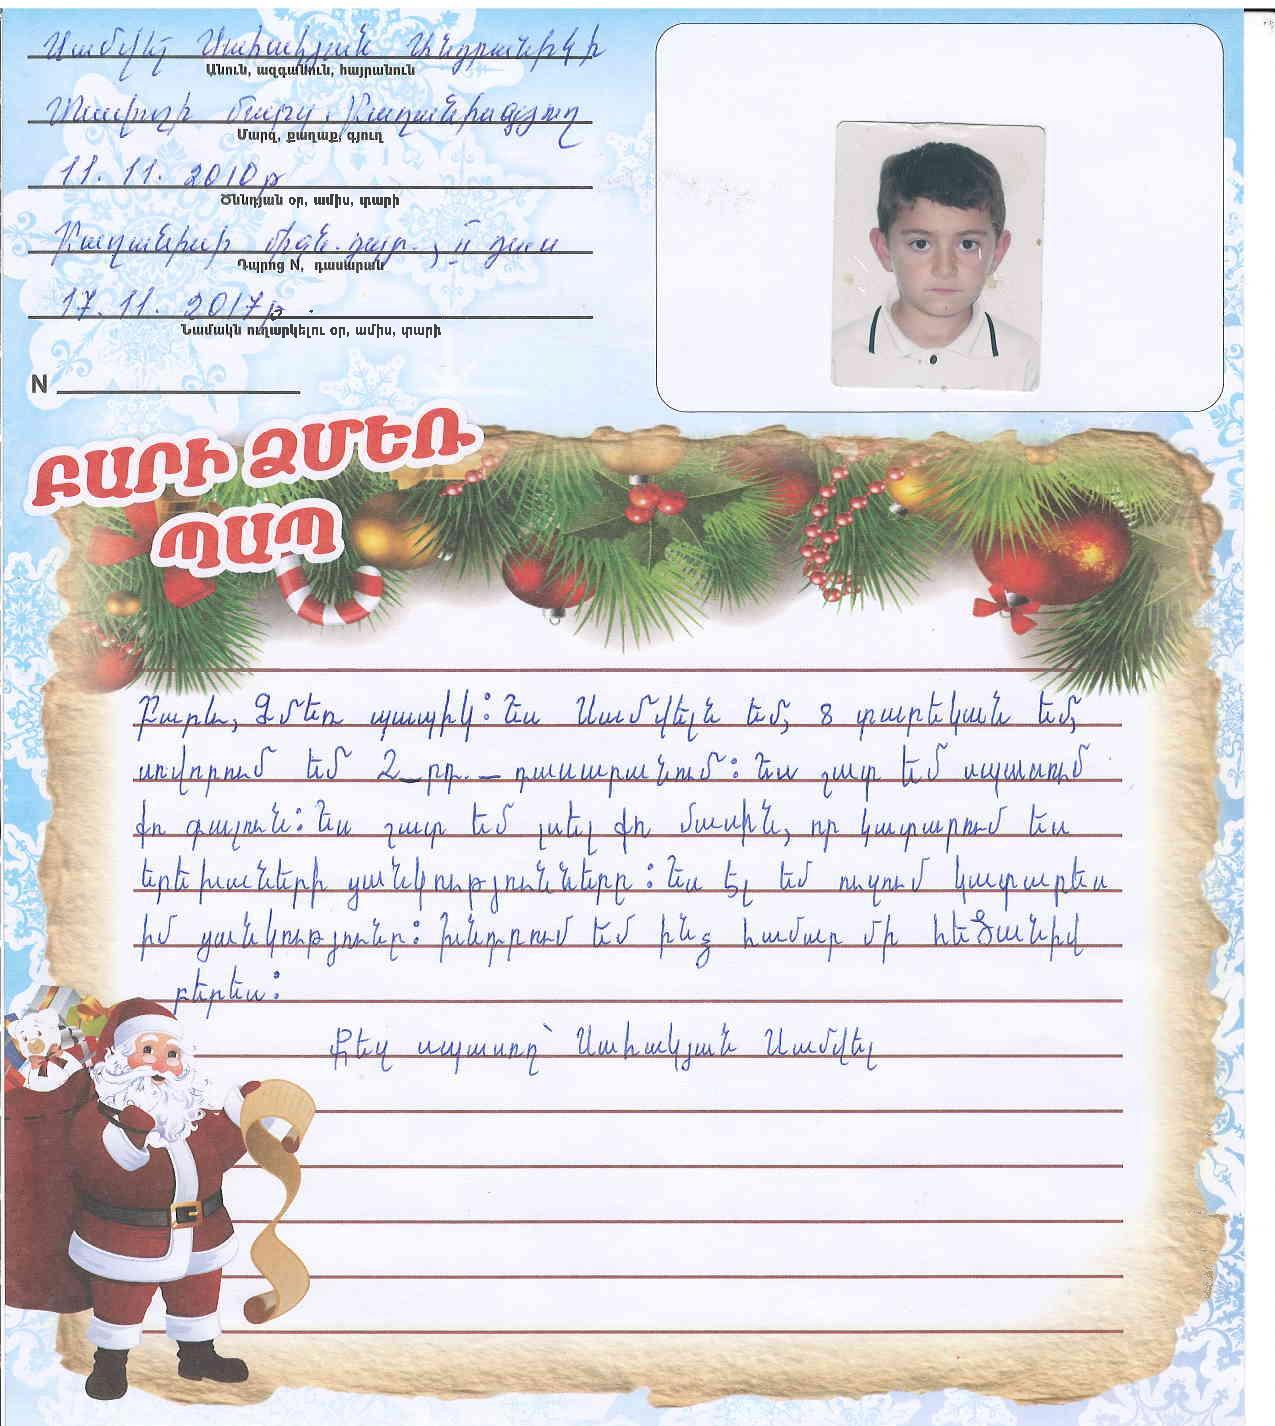 Սամվել Սահակյան Անդրանիկի
Անուն, ազգանուն, հայրանուն
Տավուշի մարզ,
Մարզ, քաղաք, գյուղ
11. 11. 2010թ
Ծննդյան օր, ամիս, տարի
միջն. դպր., II դաս
Դպրոց N, դասարան
17. 11. 2017թ.
Նամակն ուղարկելու օր, ամիս, տարի
N
ԲԱՐԻ ՁՄԵՌ
ՊԱՊ
Բարև, Ձմեռ պապիկ: Ես Սամվելն եմ, 8 տարեկան եմ,
սովորում եմ 2-րդ - դասարանում: Ես շատ եմ սպասում
քո գալուն: Ես շատ եմ լսել քո մասին, որ կատարում ես
երեխաների ցանկությունները: Ես էլ եմ ուզում կատարես
իմ ցանկություներ: Խնդրում եմ ինձ համար մի հեծանիվ
բերես:
Քեզ սպասող՝ Սահակյան Սամվել